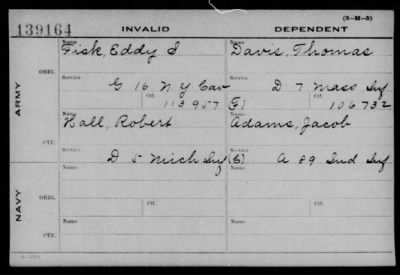 (3-M-5)
139164 INVALID DEPENDENT
ARMY
ORIG.
Name Fisk, Eddy S Name Davis, Thomas
Service G 16 N.Y. Cav Service D 7 Mass Inf
Ctf. 113957 (F) Ctf. 106732
CTF.
Name Hall, Robert Name Adams, Jacob
Service D 5 Mich Inf (S) Service A 89 Ind Inf
NAVY
ORIG.
Name Name
Service Ctf. Service Ctf.
CTF.
Name Name